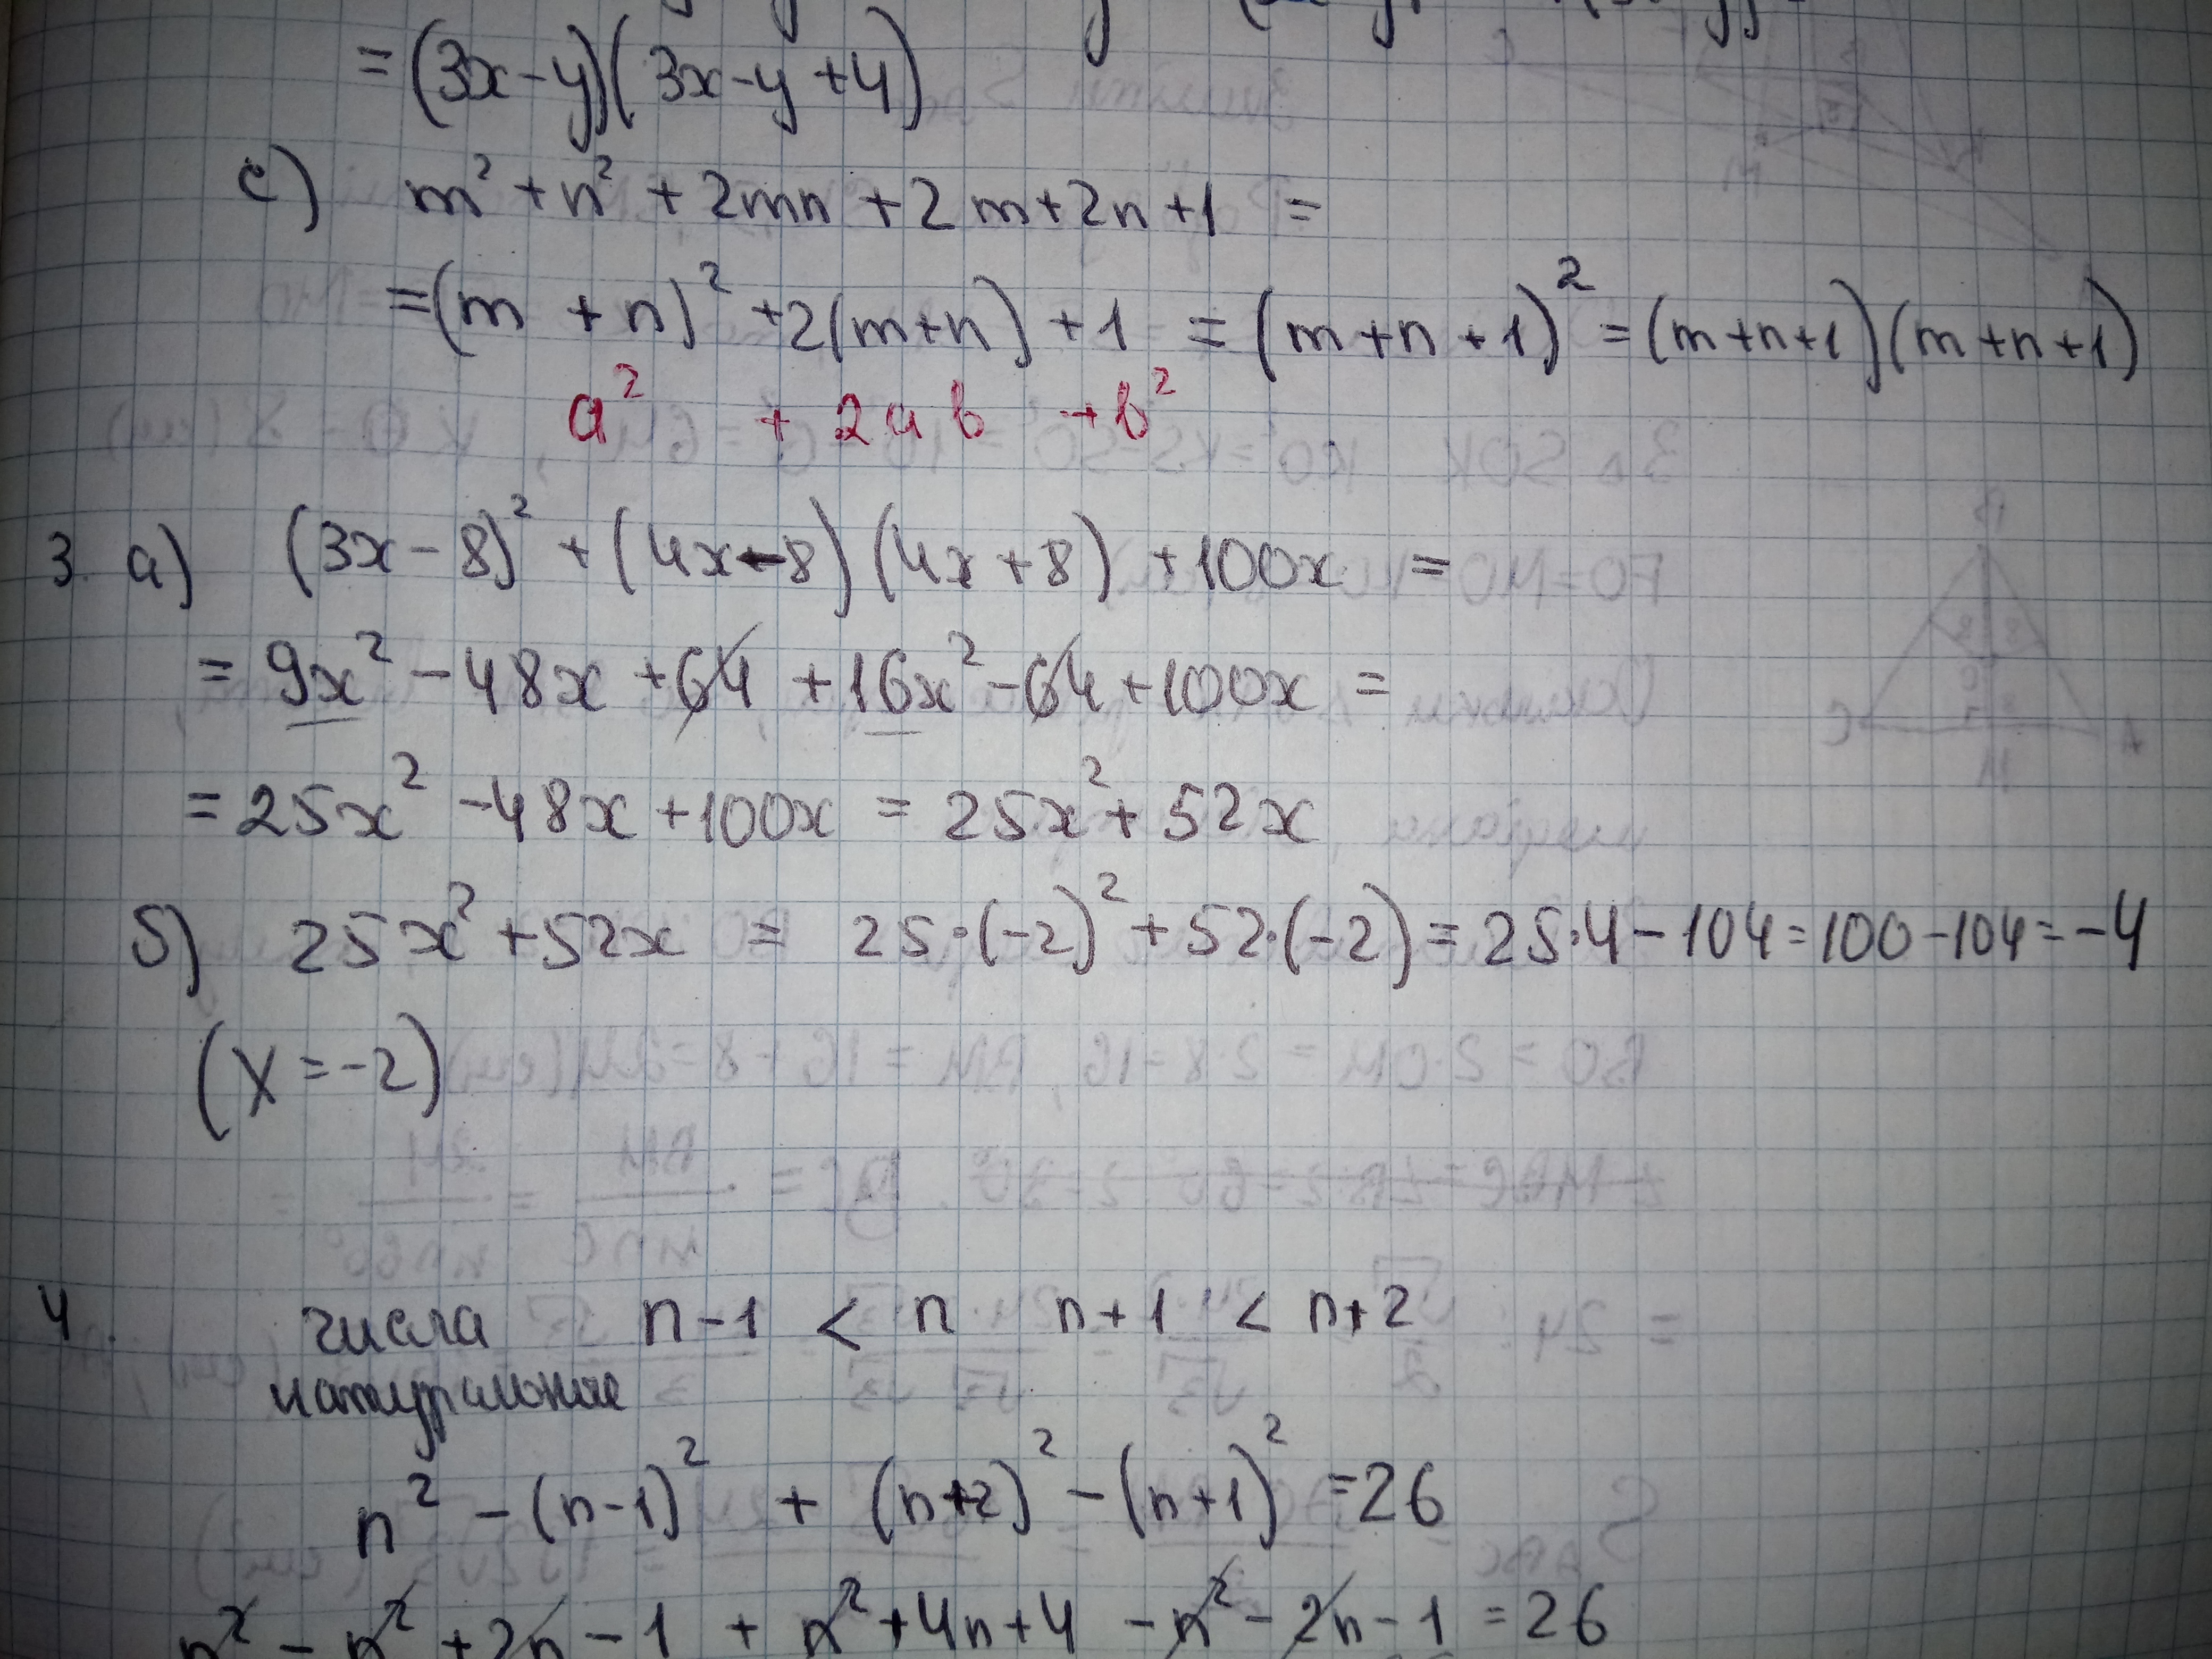 = (3x-y)(3x-y+4)
c) m² + n² + 2mn + 2m + 2n + 1 =
= (m + n)² + 2(m+n) + 1 = (m+n+1)² = (m+n+1)(m+n+1)
a² + 2ab + b²
3. a) (3x-8)² + (4x-8)(4x+8) + 100x =
= 9x² - 48x + 64 + 16x² - 64 + 100x =
= 25x² - 48x + 100x = 25x² + 52x
б) 25x² + 52x = 25·(-2)² + 52·(-2) = 25·4 - 104 = 100 - 104 = -4
(x = -2)
4. числа n-1 < n n+1 < n+2
натуральные
n² - (n-1)² + (n+2)² - (n+1)² = 26
n² - n² + 2n - 1 + n² + 4n + 4 - n² - 2n - 1 = 26